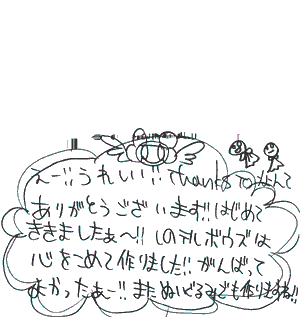 えー!!うれしい!!Thanks toなんて
ありがとうございます!!はじめて
ききましたぁ〜!!このテルボウズは
心をこめて作りました!!がんばって
よかったぁー!!またぬいぐるみども作りますね!!